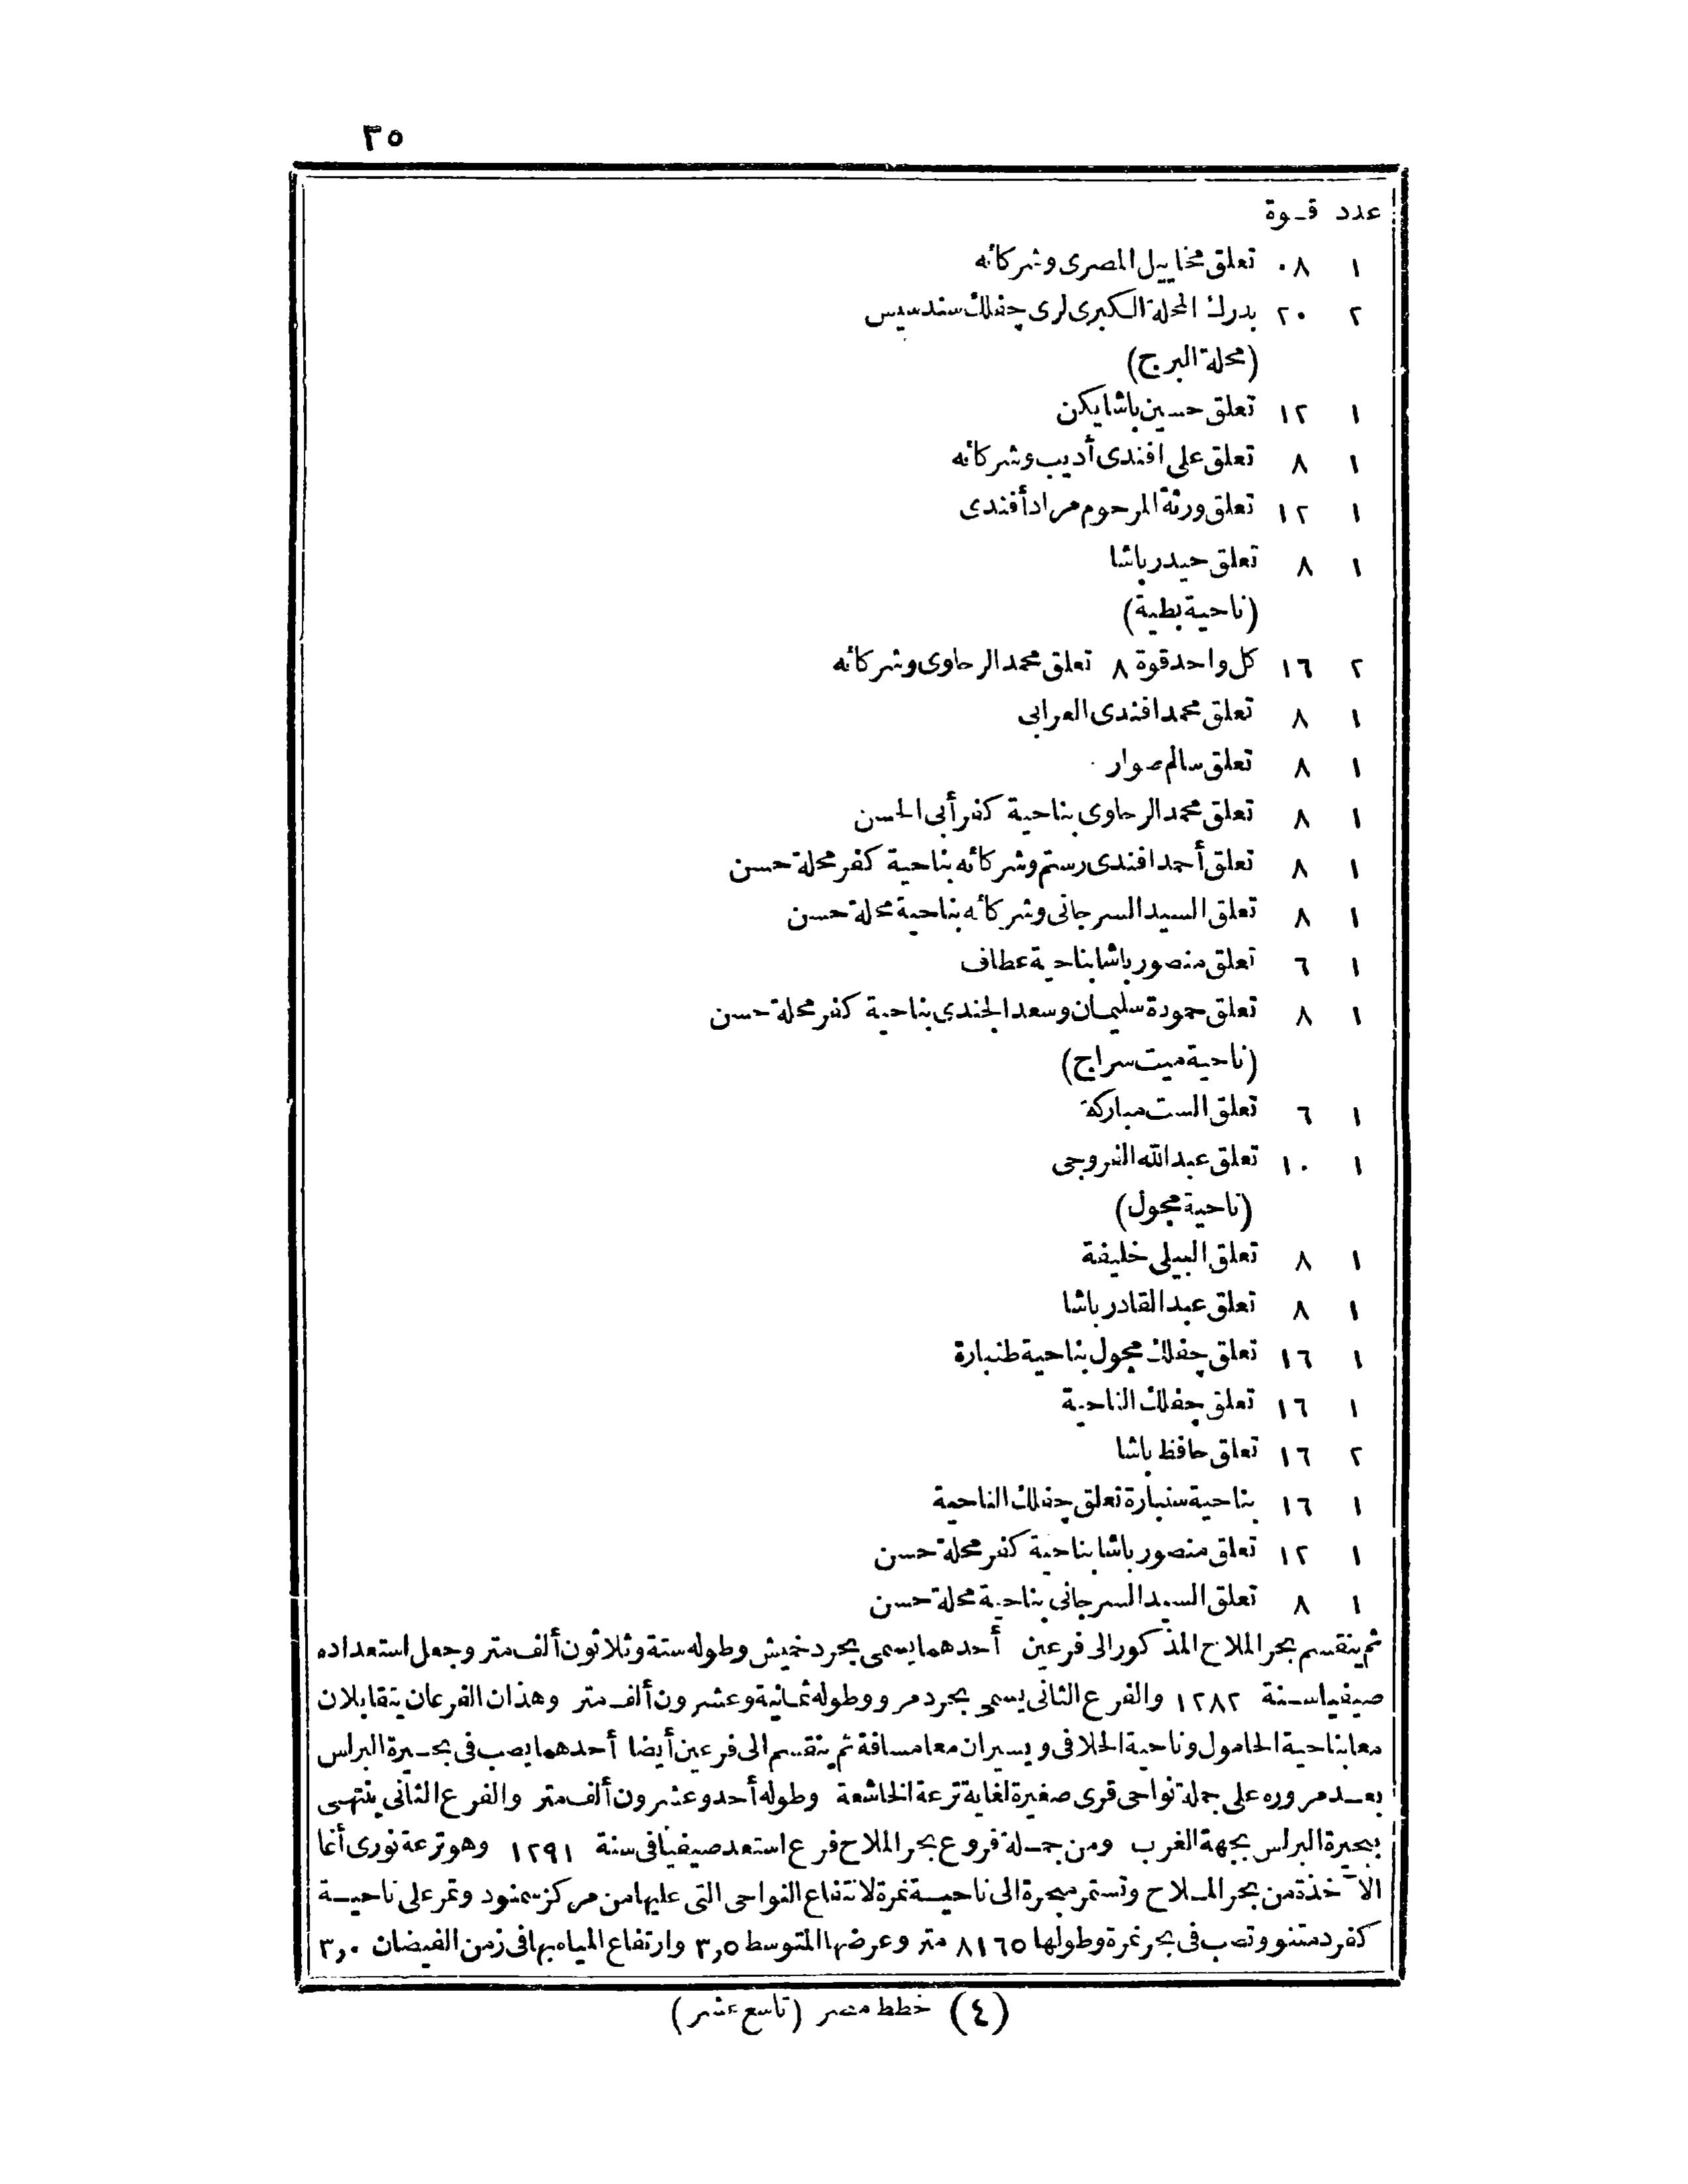 ٣٥
عدد قوة
١ ٠٨ تعلق مخاييل المصرى وشركائه
٢ ٢٠ بدرك المحلة الكبرى لرى چفلك سندسيس
(محلة البرج)
١ ١٢ تعلق حسين باشا يكن
١ ٨ تعلق على افندى أديب وشركائه
١ ١٢ تعلق ورثة المرحوم مراد أفندى
١ ٨ تعلق حيدر باشا
(ناحية بطية)
٢ ١٦ كل واحد قوة ٨ تعلق محمد الرحاوى وشركائه
١ ٨ تعلق محمد افندى العرابى
١ ٨ تعلق سالم صوار
١ ٨ تعلق محمد الرحاوى بناحية كفر أبى الحسن
١ ٨ تعلق أحمد افندى رستم وشركائه بناحية كفر محلة حسن
١ ٨ تعلق السيد السرجانى وشركائه بناحية محلة حسن
١ ٦ تعلق منصور باشا بناحية عطاف
١ ٨ تعلق حمودة سليمان وسعد الجندى بناحية كفر محلة حسن
(ناحية ميت سراج)
١ ٦ تعلق الست مباركة
١ ١٠ تعلق عبد الله الفروجى
(ناحية مجول)
١ ٨ تعلق البيلى خليفة
١ ٨ تعلق عبد القادر باشا
١ ١٦ تعلق چفلك مجول بناحية طنبارة
١ ١٦ تعلق چفلك الناحية
٢ ١٦ تعلق حافظ باشا
١ ١٦ بناحية سنبارة تعلق چفلك الناحية
١ ١٢ تعلق منصور باشا بناحية كفر محلة حسن
١ ٨ تعلق السيد السرجانى بناحية محلة حسن
ثم ينقسم بحر الملاح المذكور الى فرعين أحدهما يسمى بحر دخميش وطوله ستة وثلاثون ألف متر وجعل استعداده
صيفيا سنة ١٢٨٢ والفرع الثانى يسمى بحر دمرو وطوله ثمانية وعشرون ألف متر وهذان الفرعان يتقابلان
معا بناحية الحامول وناحية الحلافى ويسيران معا مسافة ثم ينقسم الى فرعين أيضا أحدهما يصب فى بحيرة البرلس
بعد مروره على جملة نواحى قرى صغيرة لغاية ترعة الخاشعة وطوله أحد وعشرون ألف متر والفرع الثانى ينتهى
ببحيرة البرلس بجهة الغرب ومن جملة فروع بحر الملاح فرع استعد صيفيا فى سنة ١٢٩١ وهو ترعة نورى أغا
الآخذة من بحر الملاح وتستمر مبحرة الى ناحية نمرة لانتفاع النواحى التى عليها من مركز سمنود وتمر على ناحية
كفر دمتنو وتصب فى بحر نمرة وطولها ٨١٦٥ متر وعرضها المتوسط ٣,٥ وارتفاع المياه بها فى زمن الفيضان ٣,٠
(٤) خطط مصر (تاسع عشر)